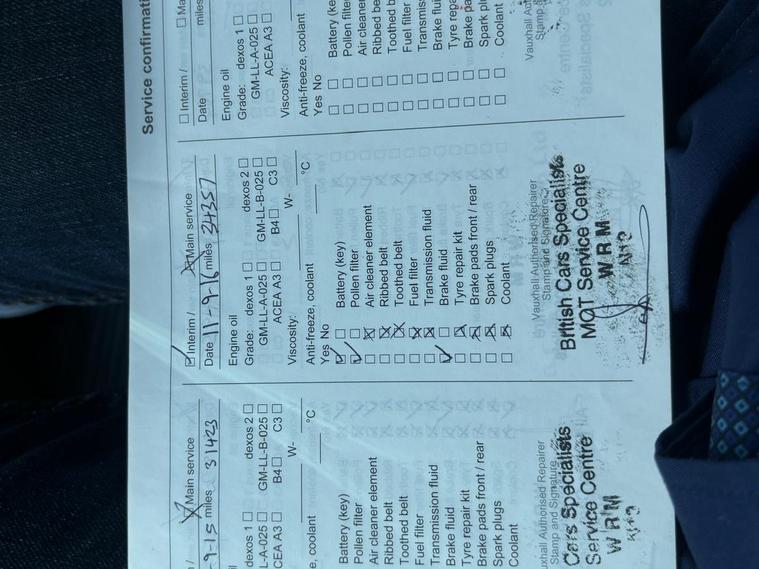 Service confirmati
Interim / Ma
Date miles
Engine oil
Grade: dexos 1
GM-LL-A-025
ACEA A3
Viscosity:
Anti-freeze, coolant
Yes No
Battery (key
Pollen filter
Air cleaner
Ribbed be
Toothed b
Fuel filter
Transmis
Brake flui
Tyre repa
Brake pa
Spark plu
Coolant
Vauxhall Au
Stamp a
Interim / Main service
Date 11-9-16 miles 34357
Engine oil
Grade: dexos 1 dexos 2
GM-LL-A-025 GM-LL-B-025
ACEA A3 B4 C3
Viscosity: W-
Anti-freeze, coolant °C
Yes No
Battery (key)
Pollen filter
Air cleaner element
Ribbed belt
Toothed belt
Fuel filter
Transmission fluid
Brake fluid
Tyre repair kit
Brake pads front / rear
Spark plugs
Coolant
Vauxhall Authorised Repairer
Stamp and Signature
British Cars Specialists
MOT Service Centre
W R M
/ Main service
-9-15 miles 31423
dexos 1 dexos 2
L-A-025 GM-LL-B-025
CEA A3 B4 C3
W-
e, coolant °C
Battery (key)
Pollen filter
Air cleaner element
Ribbed belt
Toothed belt
Fuel filter
Transmission fluid
Brake fluid
Tyre repair kit
Brake pads front / rear
Spark plugs
Coolant
uxhall Authorised Repairer
Stamp and Signature
Cars Specialists
Service Centre
W R M